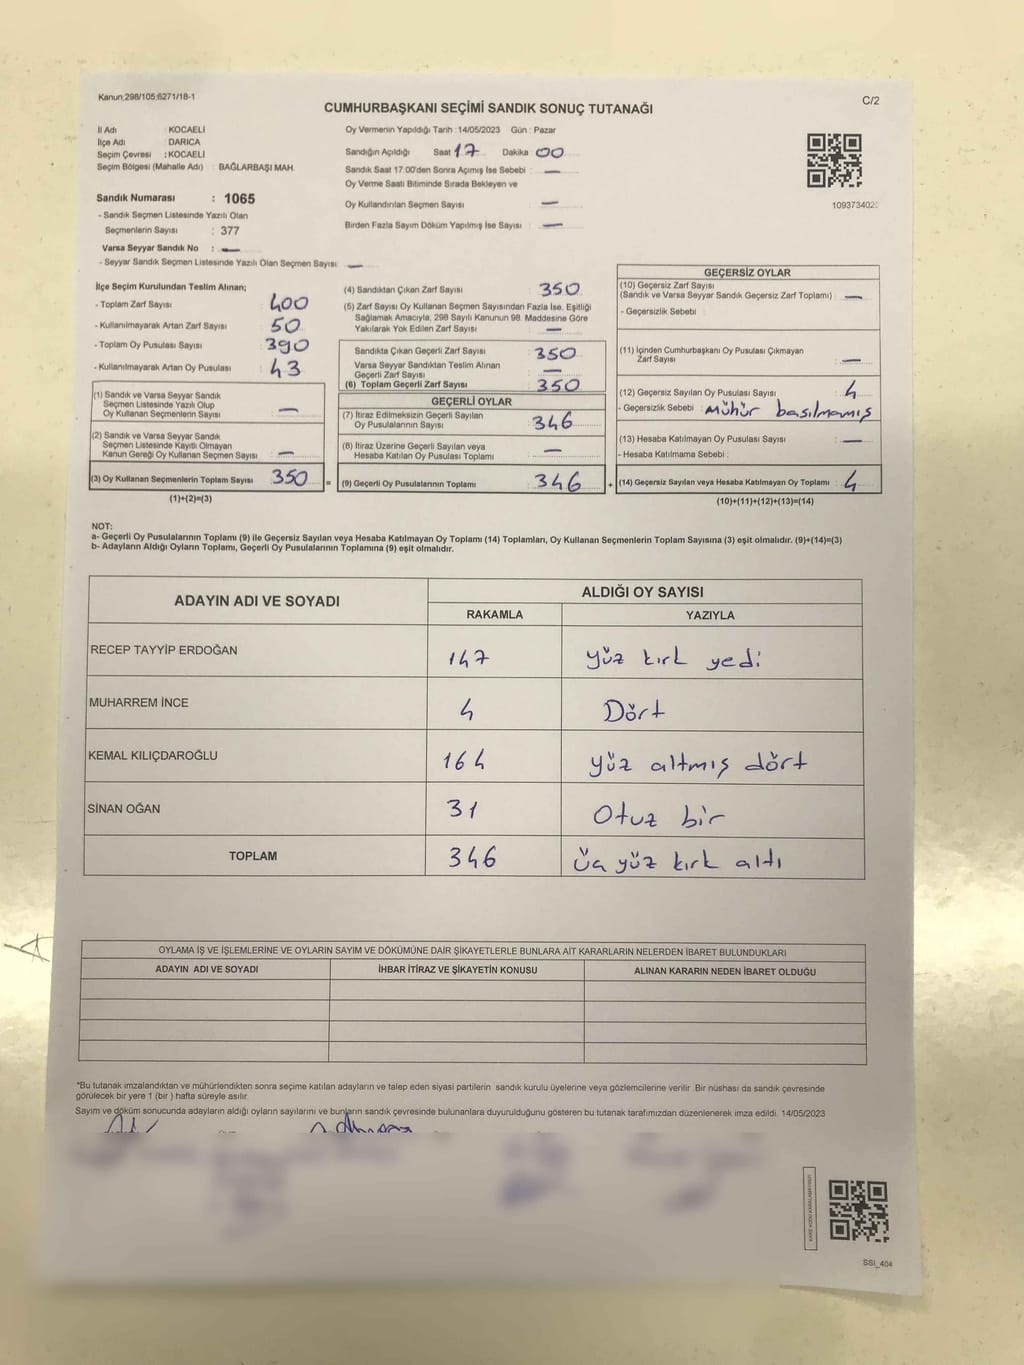 Kanun:298/105;6271/18-1
C/2
CUMHURBAŞKANI SEÇİMİ SANDIK SONUÇ TUTANAĞI
İl Adı : KOCAELİ
İlçe Adı : DARICA
Seçim Çevresi : KOCAELİ
Seçim Bölgesi (Mahalle Adı) : BAĞLARBAŞI MAH.
Sandık Numarası : 1065
- Sandık Seçmen Listesinde Yazılı Olan
Seçmenlerin Sayısı : 377
Varsa Seyyar Sandık No : —
- Seyyar Sandık Seçmen Listesinde Yazılı Olan Seçmen Sayısı —
Oy Vermenin Yapıldığı Tarih : 14/05/2023 Gün : Pazar
Sandığın Açıldığı Saat 17 Dakika 00
Sandık Saat 17:00'den Sonra Açımış İse Sebebi : —
Oy Verme Saati Bitiminde Sırada Bekleyen ve
Oy Kullandırılan Seçmen Sayısı —
Birden Fazla Sayım Döküm Yapılmış İse Sayısı : —
109373402
İlçe Seçim Kurulundan Teslim Alınan;
- Toplam Zarf Sayısı 400
- Kullanılmayarak Artan Zarf Sayısı 50
- Toplam Oy Pusulası Sayısı 390
- Kullanılmayarak Artan Oy Pusulası 43
(1) Sandık ve Varsa Seyyar Sandık
Seçmen Listesinde Yazılı Olup
Oy Kullanan Seçmenlerin Sayısı —
(2) Sandık ve Varsa Seyyar Sandık
Seçmen Listesinde Kayıtlı Olmayan
Kanun Gereği Oy Kullanan Seçmen Sayısı —
(3) Oy Kullanan Seçmenlerin Toplam Sayısı 350
(1)+(2)=(3)
(4) Sandıktan Çıkan Zarf Sayısı 350
(5) Zarf Sayısı Oy Kullanan Seçmen Sayısından Fazla İse, Eşitliği
Sağlamak Amacıyla, 298 Sayılı Kanunun 98. Maddesine Göre
Yakılarak Yok Edilen Zarf Sayısı —
Sandıkta Çıkan Geçerli Zarf Sayısı 350
Varsa Seyyar Sandıktan Teslim Alınan
Geçerli Zarf Sayısı —
(6) Toplam Geçerli Zarf Sayısı 350
GEÇERLİ OYLAR
(7) İtiraz Edilmeksizin Geçerli Sayılan
Oy Pusulalarının Sayısı 346
(8) İtiraz Üzerine Geçerli Sayılan veya
Hesaba Katılan Oy Pusulası Toplamı —
= (9) Geçerli Oy Pusulalarının Toplamı 346
GEÇERSİZ OYLAR
(10) Geçersiz Zarf Sayısı
(Sandık ve Varsa Seyyar Sandık Geçersiz Zarf Toplamı) : —
- Geçersizlik Sebebi :
(11) İçinden Cumhurbaşkanı Oy Pusulası Çıkmayan
Zarf Sayısı —
(12) Geçersiz Sayılan Oy Pusulası Sayısı 4
- Geçersizlik Sebebi : Mühür basılmamış
(13) Hesaba Katılmayan Oy Pusulası Sayısı —
- Hesaba Katılmama Sebebi :
+ (14) Geçersiz Sayılan veya Hesaba Katılmayan Oy Toplamı 4
(10)+(11)+(12)+(13)=(14)
NOT:
a- Geçerli Oy Pusulalarının Toplamı (9) ile Geçersiz Sayılan veya Hesaba Katılmayan Oy Toplamı (14) Toplamları, Oy Kullanan Seçmenlerin Toplam Sayısına (3) eşit olmalıdır. (9)+(14)=(3)
b- Adayların Aldığı Oyların Toplamı, Geçerli Oy Pusulalarının Toplamına (9) eşit olmalıdır.
ADAYIN ADI VE SOYADI
ALDIĞI OY SAYISI
RAKAMLA YAZIYLA
RECEP TAYYİP ERDOĞAN 147 yüz kırk yedi
MUHARREM İNCE 4 Dört
KEMAL KILIÇDAROĞLU 164 yüz altmış dört
SİNAN OĞAN 31 Otuz bir
TOPLAM 346 Üç yüz kırk altı
OYLAMA İŞ VE İŞLEMLERİNE VE OYLARIN SAYIM VE DÖKÜMÜNE DAİR ŞİKAYETLERLE BUNLARA AİT KARARLARIN NELERDEN İBARET BULUNDUKLARI
ADAYIN ADI VE SOYADI İHBAR İTİRAZ VE ŞİKAYETİN KONUSU ALINAN KARARIN NEDEN İBARET OLDUĞU
*Bu tutanak imzalandıktan ve mühürlendikten sonra seçime katılan adayların ve talep eden siyasi partilerin sandık kurulu üyelerine veya gözlemcilerine verilir .Bir nüshası da sandık çevresinde
görülecek bir yere 1 (bir ) hafta süreyle asılır.
Sayım ve döküm sonucunda adayların aldığı oyların sayılarını ve bunların sandık çevresinde bulunanlara duyurulduğunu gösteren bu tutanak tarafımızdan düzenlenerek imza edildi. 14/05/2023
SSI_404